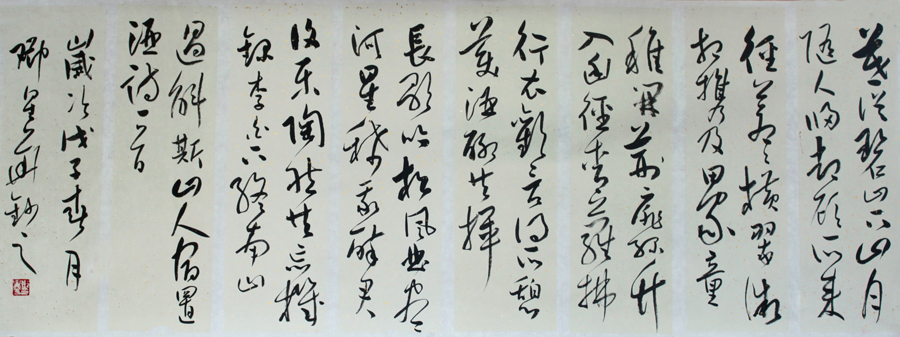 暮從碧山下山月
隨人歸却顧所來
徑蒼蒼橫翠微
相攜及田家童
稚開荊扉綠竹
入幽徑青蘿拂
行衣歡言得所憩
美酒聊共揮
長歌吟松風曲盡
河星稀我醉君
復樂陶然共忘機
錄李白下終南山
過斛斯山人宿置
酒詩一首
歲次戊子春月
鈔之